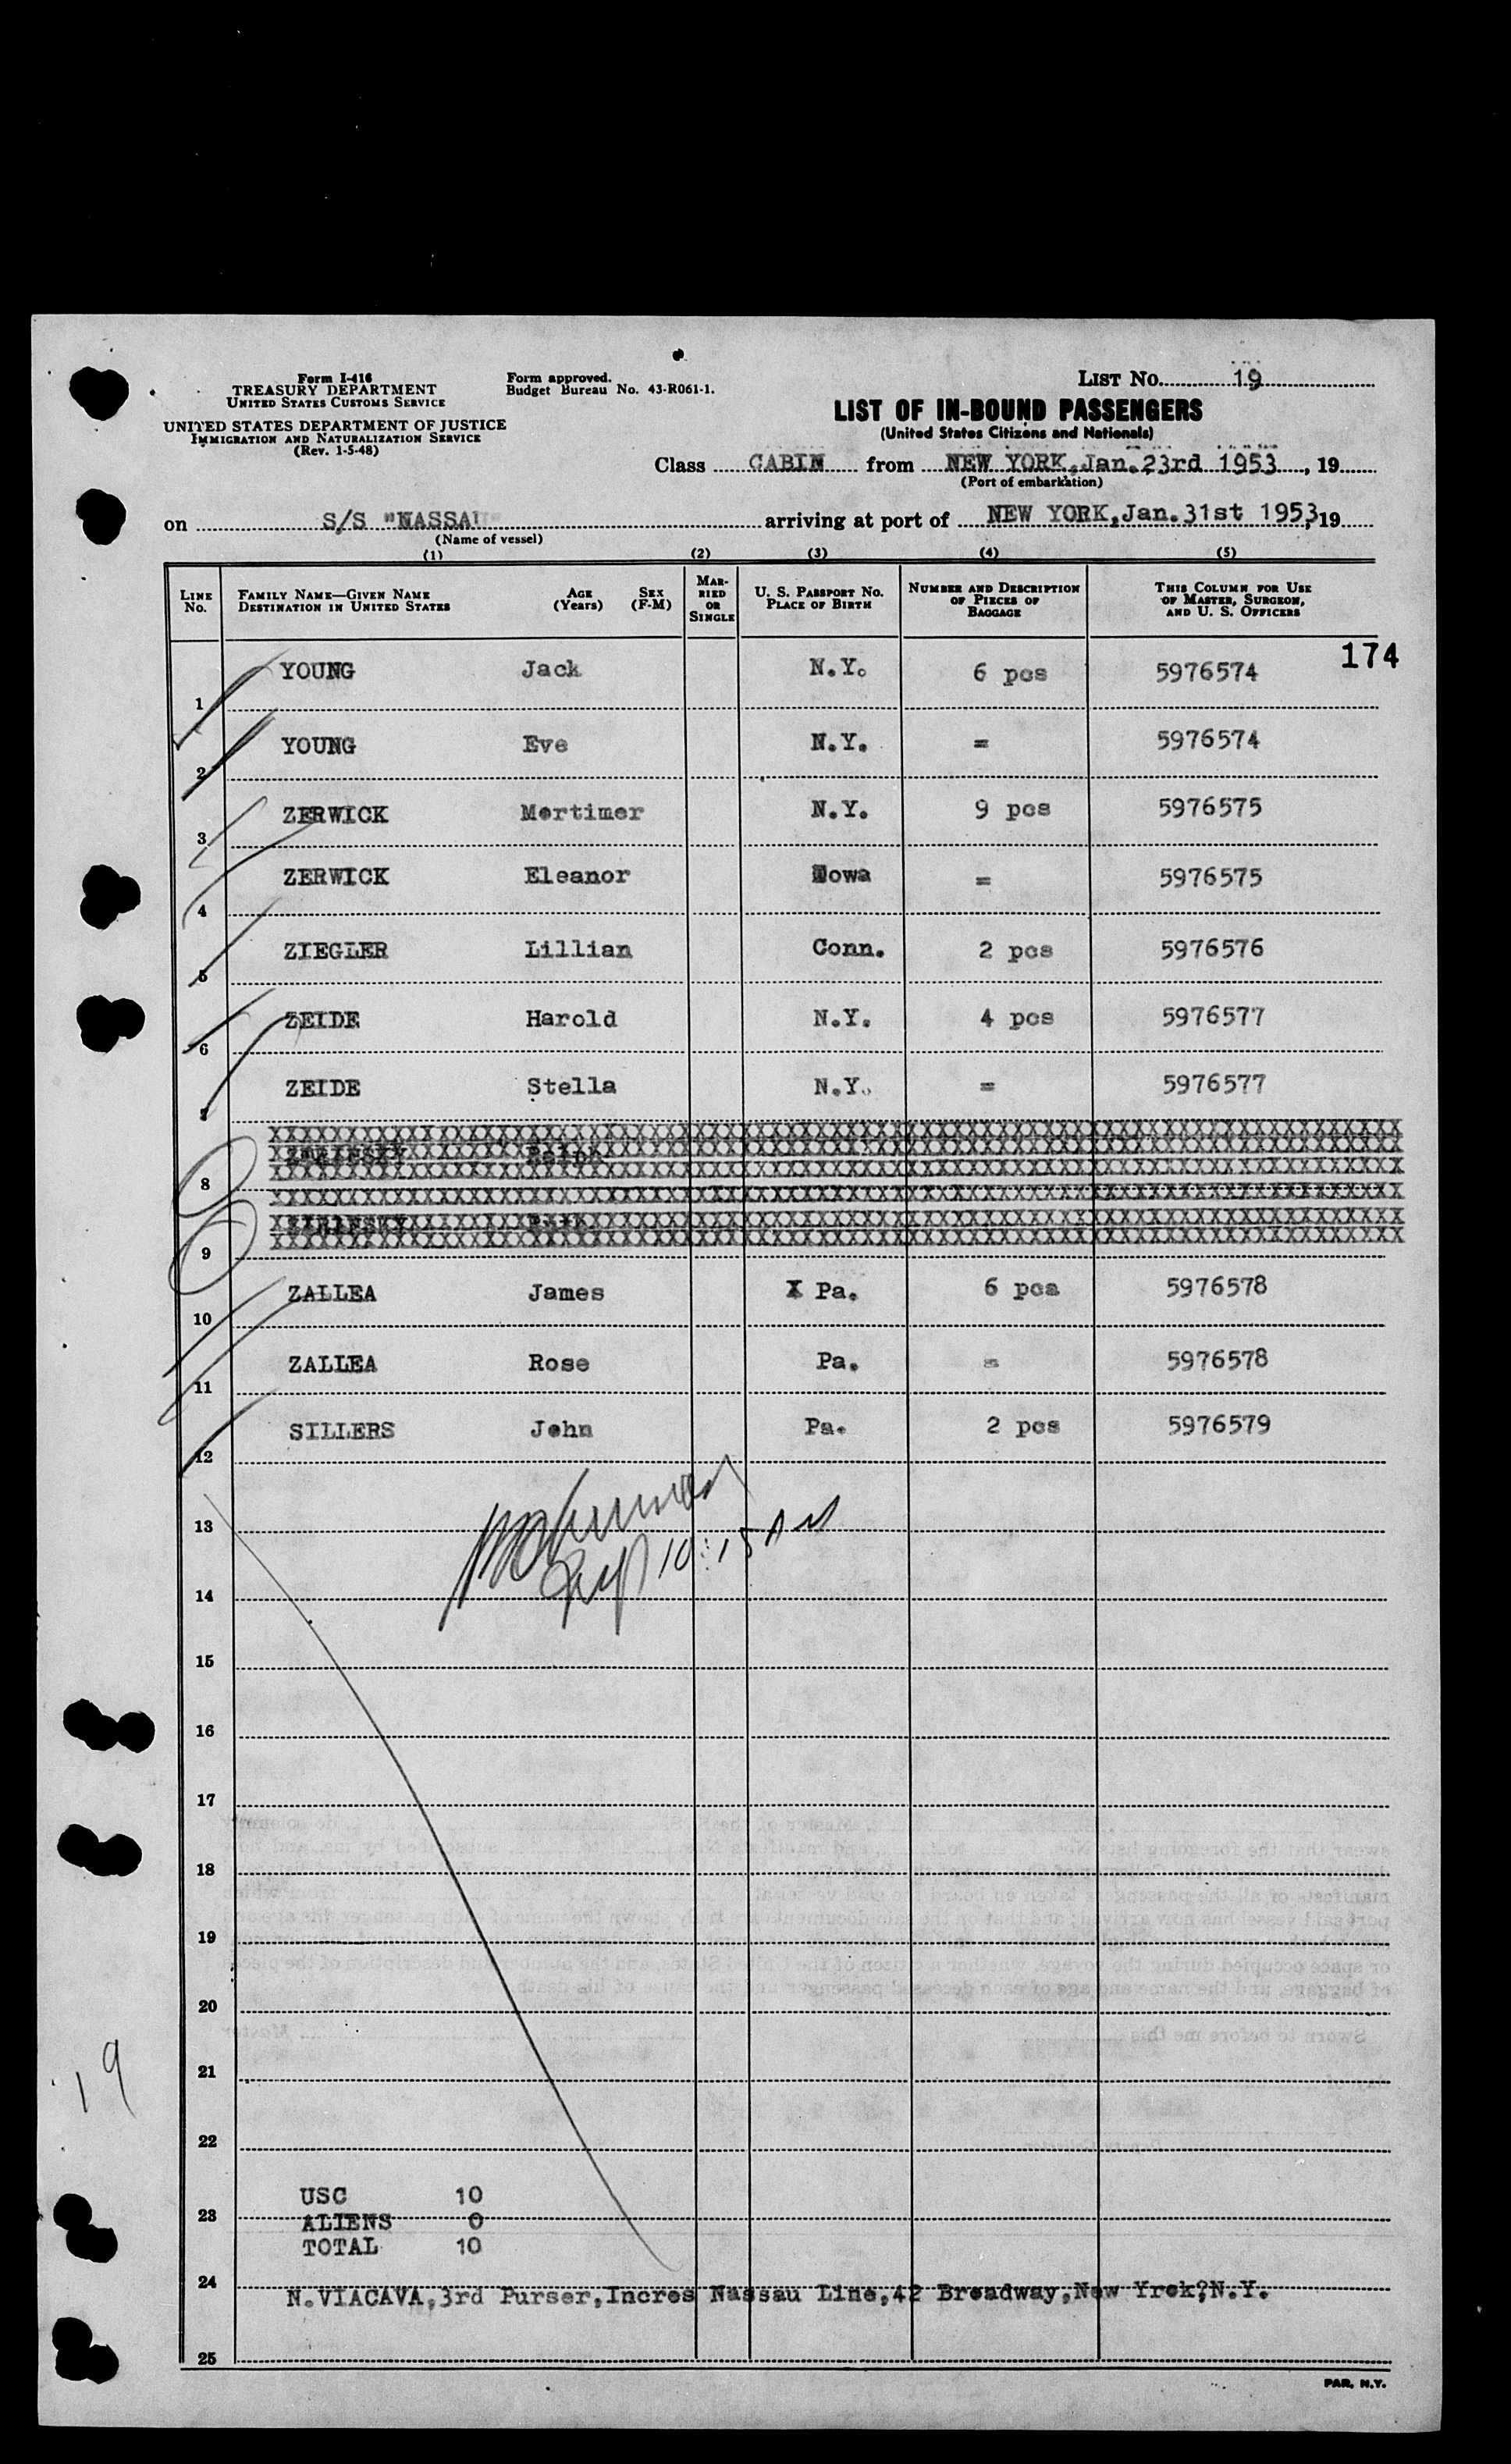 Form I-416
TREASURY DEPARTMENT
UNITED STATES CUSTOMS SERVICE
UNITED STATES DEPARTMENT OF JUSTICE
IMMIGRATION AND NATURALIZATION SERVICE
(Rev. 1-5-48)
Form approved.
Budget Bureau No. 43-R061-1.
LIST NO. 19
LIST OF IN-BOUND PASSENGERS
(United States Citizens and Nationals)
Class CABIN from NEW YORK, Jan. 23rd 1953, 19
(Port of embarkation)
on S/S "NASSAU" arriving at port of NEW YORK, Jan. 31st 1953, 19
(Name of vessel)
(1) (2) (3) (4) (5)
LINE No. FAMILY NAME—GIVEN NAME DESTINATION IN UNITED STATES AGE (Years) SEX (F-M) MARRIED OR SINGLE U. S. PASSPORT NO. PLACE OF BIRTH NUMBER AND DESCRIPTION OF PIECES OF BAGGAGE THIS COLUMN FOR USE OF MASTER, SURGEON, AND U. S. OFFICERS
174
1 YOUNG Jack N.Y. 6 pcs 5976574
2 YOUNG Eve N.Y. = 5976574
3 ZERWICK Mortimer N.Y. 9 pcs 5976575
4 ZERWICK Eleanor Iowa = 5976575
5 ZIEGLER Lillian Conn. 2 pcs 5976576
6 ZEIDE Harold N.Y. 4 pcs 5976577
7 ZEIDE Stella N.Y. = 5976577
8
9
10 ZALLEA James X Pa. 6 pcs 5976578
11 ZALLEA Rose Pa. = 5976578
12 SILLERS John Pa. 2 pcs 5976579
13
10:15 AM
14
15
16
17
18
19
20
21
19
22
USC 10
23
ALIENS 0
TOTAL 10
24
N.VIACAVA,3rd Purser,Incres Nassau Line,42 Broadway,New Yrok?N.Y.
25
PAR. N.Y.